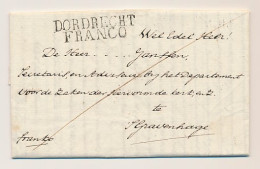 DORDRECHT
FRANCO
Wel Edel Heer!
De Heer - - - - Janssen,
Secretaris en Adviseur by het Departement
voor de Zaken der Hervormde
te
s'Gravenhage
franko